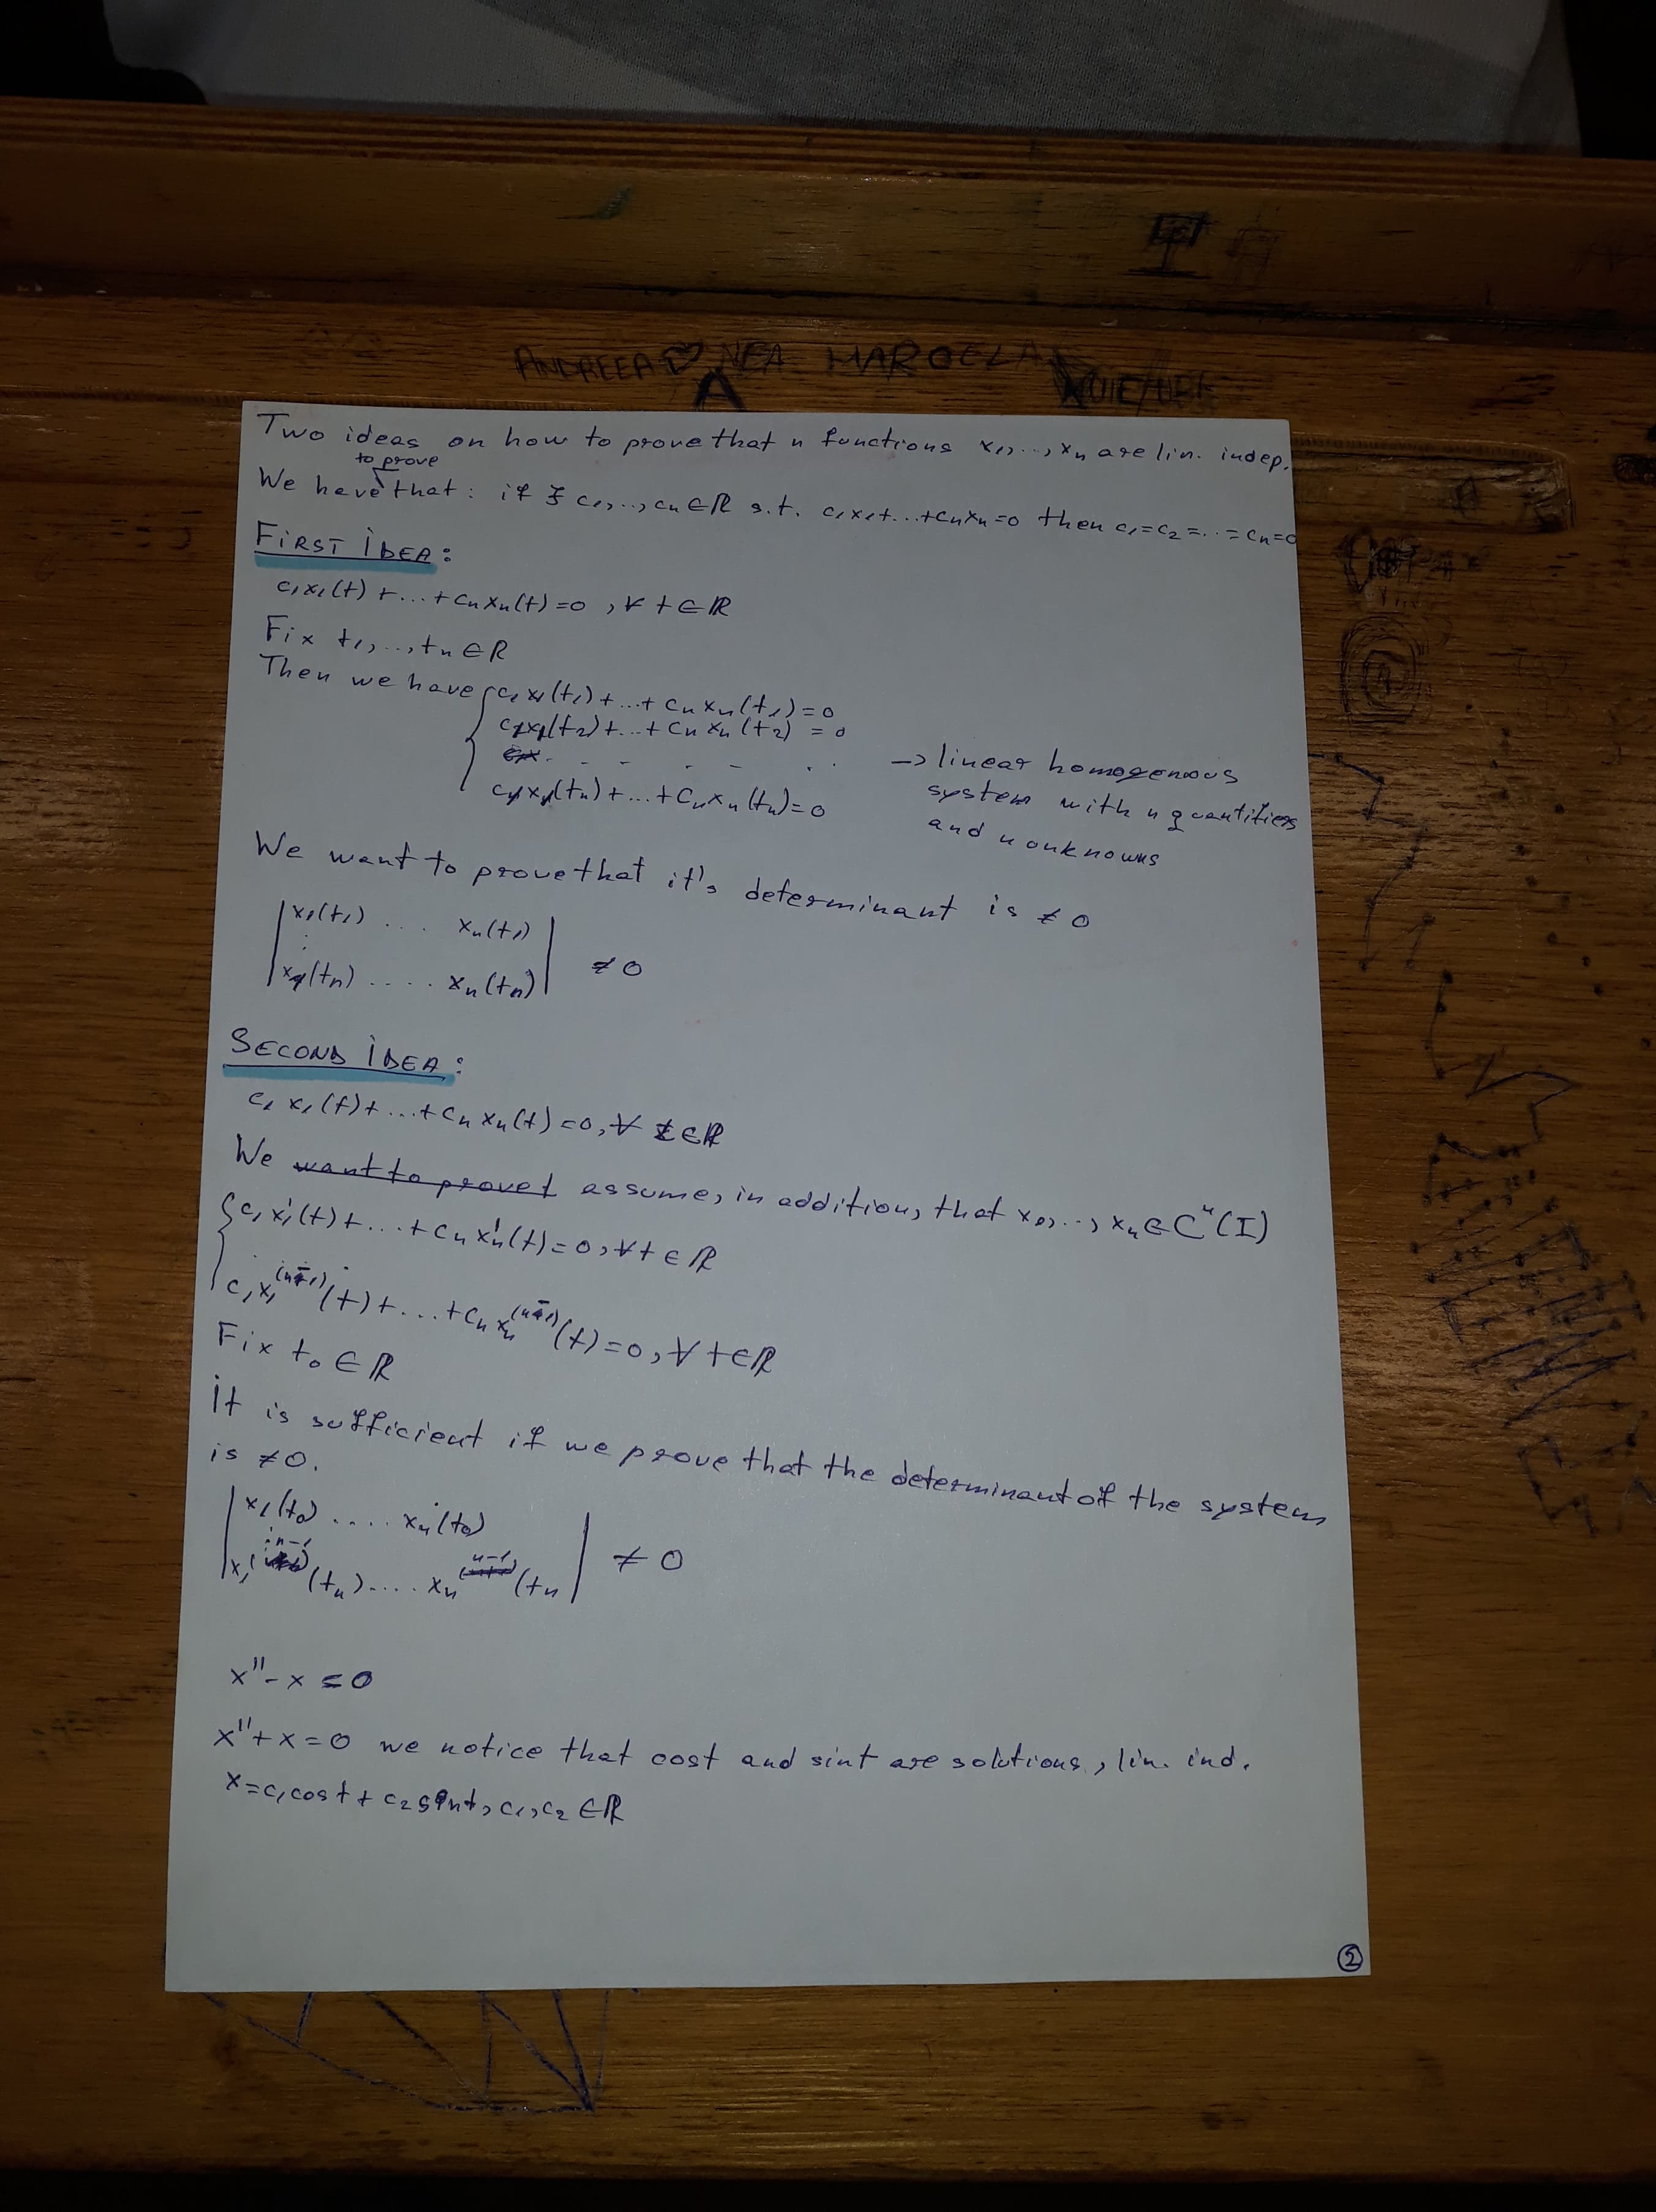 ANDREEA ♡ NEA MARCELA
Two ideas on how to prove that n functions x₁,..,xₙ are lin. indep.
to prove
We have that: if ∃ c₁,..,cₙ∈ℝ s.t. c₁x₁+...+cₙxₙ=0 then c₁=c₂=..=cₙ=0
FIRST IDEA:
c₁x₁(t)+...+cₙxₙ(t)=0, ∀ t∈ℝ
Fix t₁,..,tₙ∈ℝ
Then we have { c₁x₁(t₁)+...+cₙxₙ(t₁)=0
c₁x₁(t₂)+...+cₙxₙ(t₂)=0
. . . . . .
c₁x₁(tₙ)+...+cₙxₙ(tₙ)=0
→ linear homogenous
system with n quantifiers
and n unknowns
We want to prove that it's determinant is ≠0
| x₁(t₁) ... xₙ(t₁) |
⋮
| x₁(tₙ) .... xₙ(tₙ) | ≠0
SECOND IDEA:
c₁x₁(t)+...+cₙxₙ(t)=0, ∀ t∈ℝ
We want to prove t assume, in addition, that x₁,..,xₙ∈Cⁿ(I)
{ c₁x₁'(t)+...+cₙxₙ'(t)=0, ∀t∈ℝ
⋮
c₁x₁⁽ⁿ⁻¹⁾(t)+...+cₙxₙ⁽ⁿ⁻¹⁾(t)=0, ∀t∈ℝ
Fix t₀∈ℝ
It is sufficient if we prove that the determinant of the system
is ≠0.
| x₁(t₀) .... xₙ(t₀) |
| x₁ⁿ⁻¹(tₙ) .... xₙⁿ⁻¹(tₙ | ≠ 0
x''-x=0
x''+x=0 we notice that cost and sint are solutions, lin. ind.
x=c₁cost+c₂sint, c₁,c₂∈ℝ
②